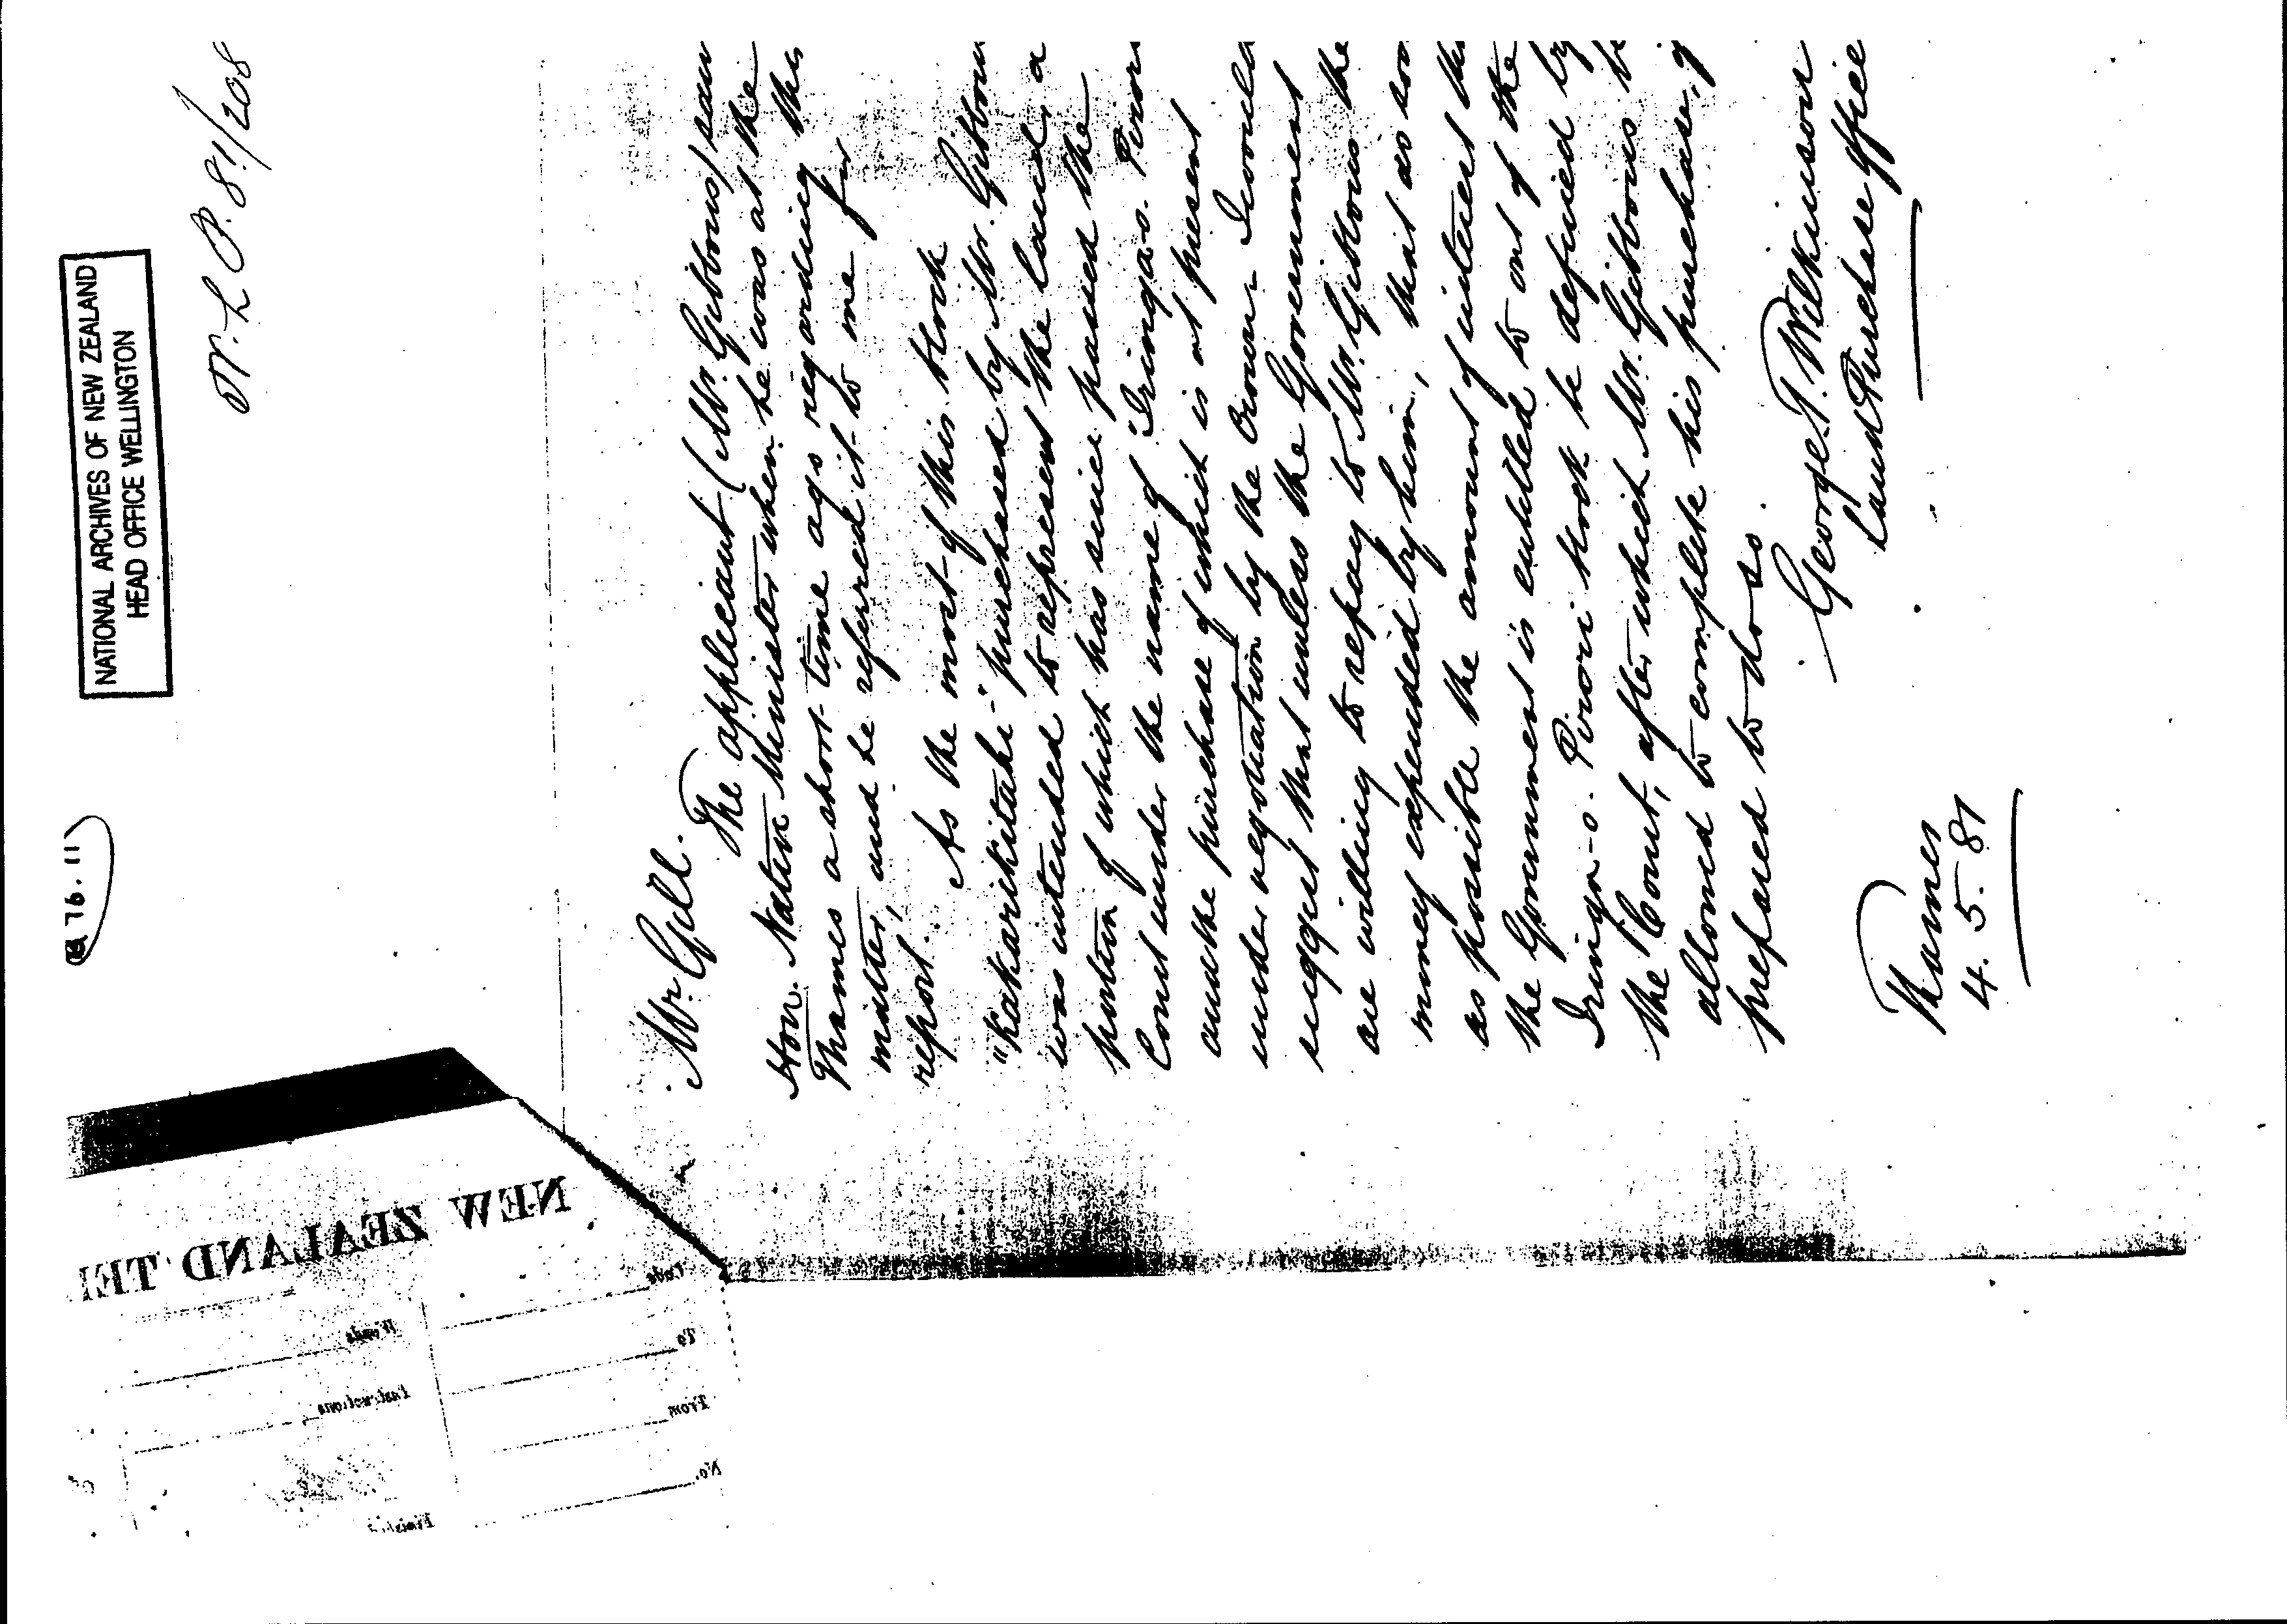 NATIONAL ARCHIVES OF NEW ZEALAND
HEAD OFFICE WELLINGTON
N.L.P. 81/208
Mr. Gill.
The applicant (Mr. Gibbons) saw
Hon. Native Minister when he was at the
Thames a short time ago regarding the
matter, and he referred it to me for
report.
As the most of this block
"Kakarikitahi" purchased by Mr. Gibbons
was intended to represent the land, a
portion of which has since passed the
Court under the name of "Iringa-o-Pirori
and the purchase of which is at present
under negotiation by the Crown - I would
suggest that unless the Government
are willing to repay to Mr. Gibbons the
money expended by him, that as soo
as possible the amount of interest th
the Government is entitled to out of the
Iringa-o-Pirori block be defined by
the Court, after which Mr. Gibbons b
allowed to complete his purchase, if
prepared to do so.
George T. Wilkinson
Land Purchase Office
Thames
4. 5. 81
NEW ZEALAND TE
Code
Words
To
Instructions
From
No.